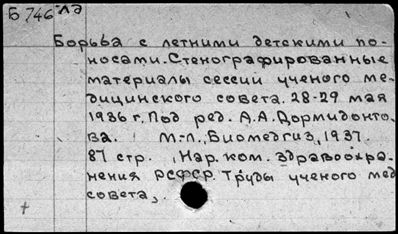 Б 746 лд
Борьба с летними детскими по-
носами. Стенографированные
материалы сессии ученого ме-
дицинского совета. 28-29 мая
1936 г. Под ред. А.А. Дормидонто-
ва. М.-Л., Биомедгиз, 1937.
87 стр. (Нар. ком. здравоохра-
нения РСФСР. Труды ученого мед
совета).
+